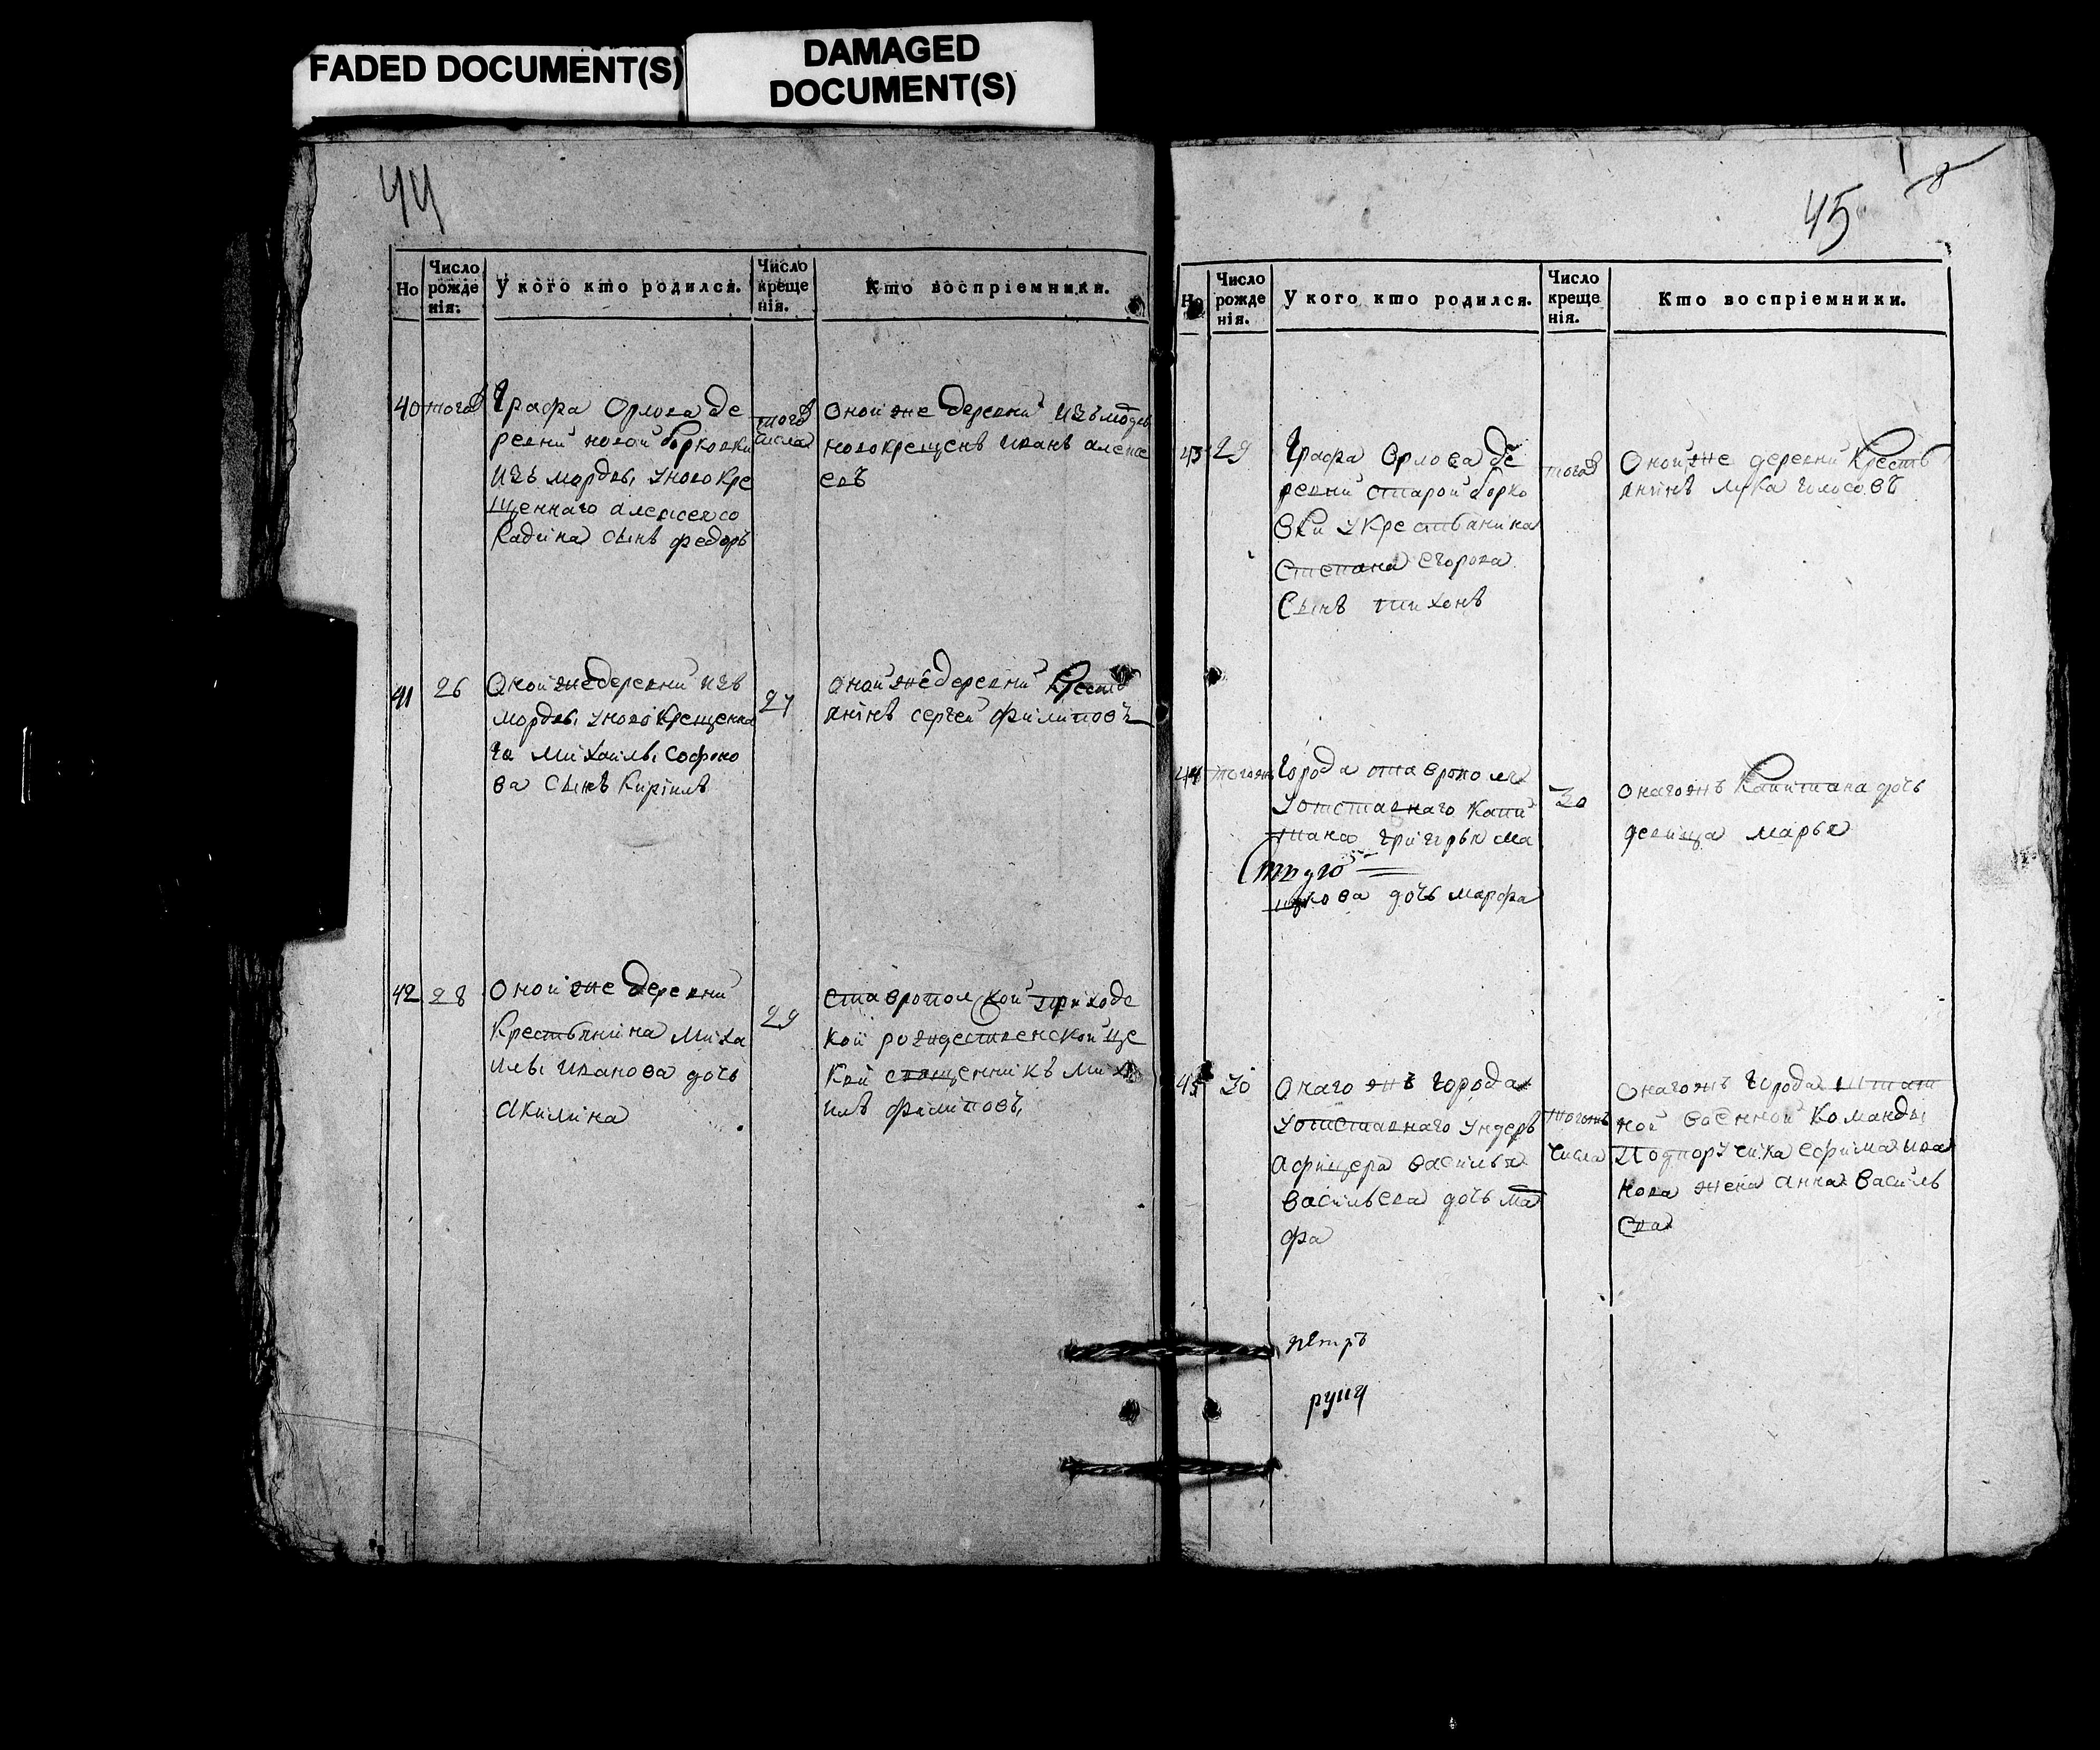 FADED DOCUMENT(S)
DAMAGED
DOCUMENT(S)
44
Но
Число
рожде
нія.
У кого кто родился.
Число
креще
нія.
Кто воспріемники.
40
того
Графа Орлова де
ревни новой борковки
изъ мордвы у новокре
щеннаго алексея
сынъ федоръ
того
числа
оной же деревни изъ мордвы
новокрещенъ иванъ алексе
евъ
41
26
оной же деревни изъ
мордвы у новокрещенна
го михаилы софоно
ва сынъ кирилъ
27
оной же деревни кресть
янинъ сергей филиповъ
42
28
оной же деревни
крестьянина миха
илы иванова дочь
акилина
29
ставропольской приходс
кой рождественской це
кви священникъ миха
илъ филиповъ
45
Но
Число
рожде
нія.
У кого кто родился.
Число
креще
нія.
Кто воспріемники.
43
29
Графа Орлова де
ревни старой борко
вки у крестьянина
степана егорова
сынъ тихонъ
того
оной же деревни кресть
янинъ лука
44
того жъ
города ставрополя
у отставнаго капи
тана григорья ма
кова дочь марфа
30
онаго жъ капитана дочь
девица марья
45
30
онаго жъ города
у отставнаго ундеръ
афицера василья
васильева дочь ма
фа
того жъ
числа
онаго жъ города штат
ной военной команды
подпорутчика ефима ива
нова жена анна василь
ева
петръ